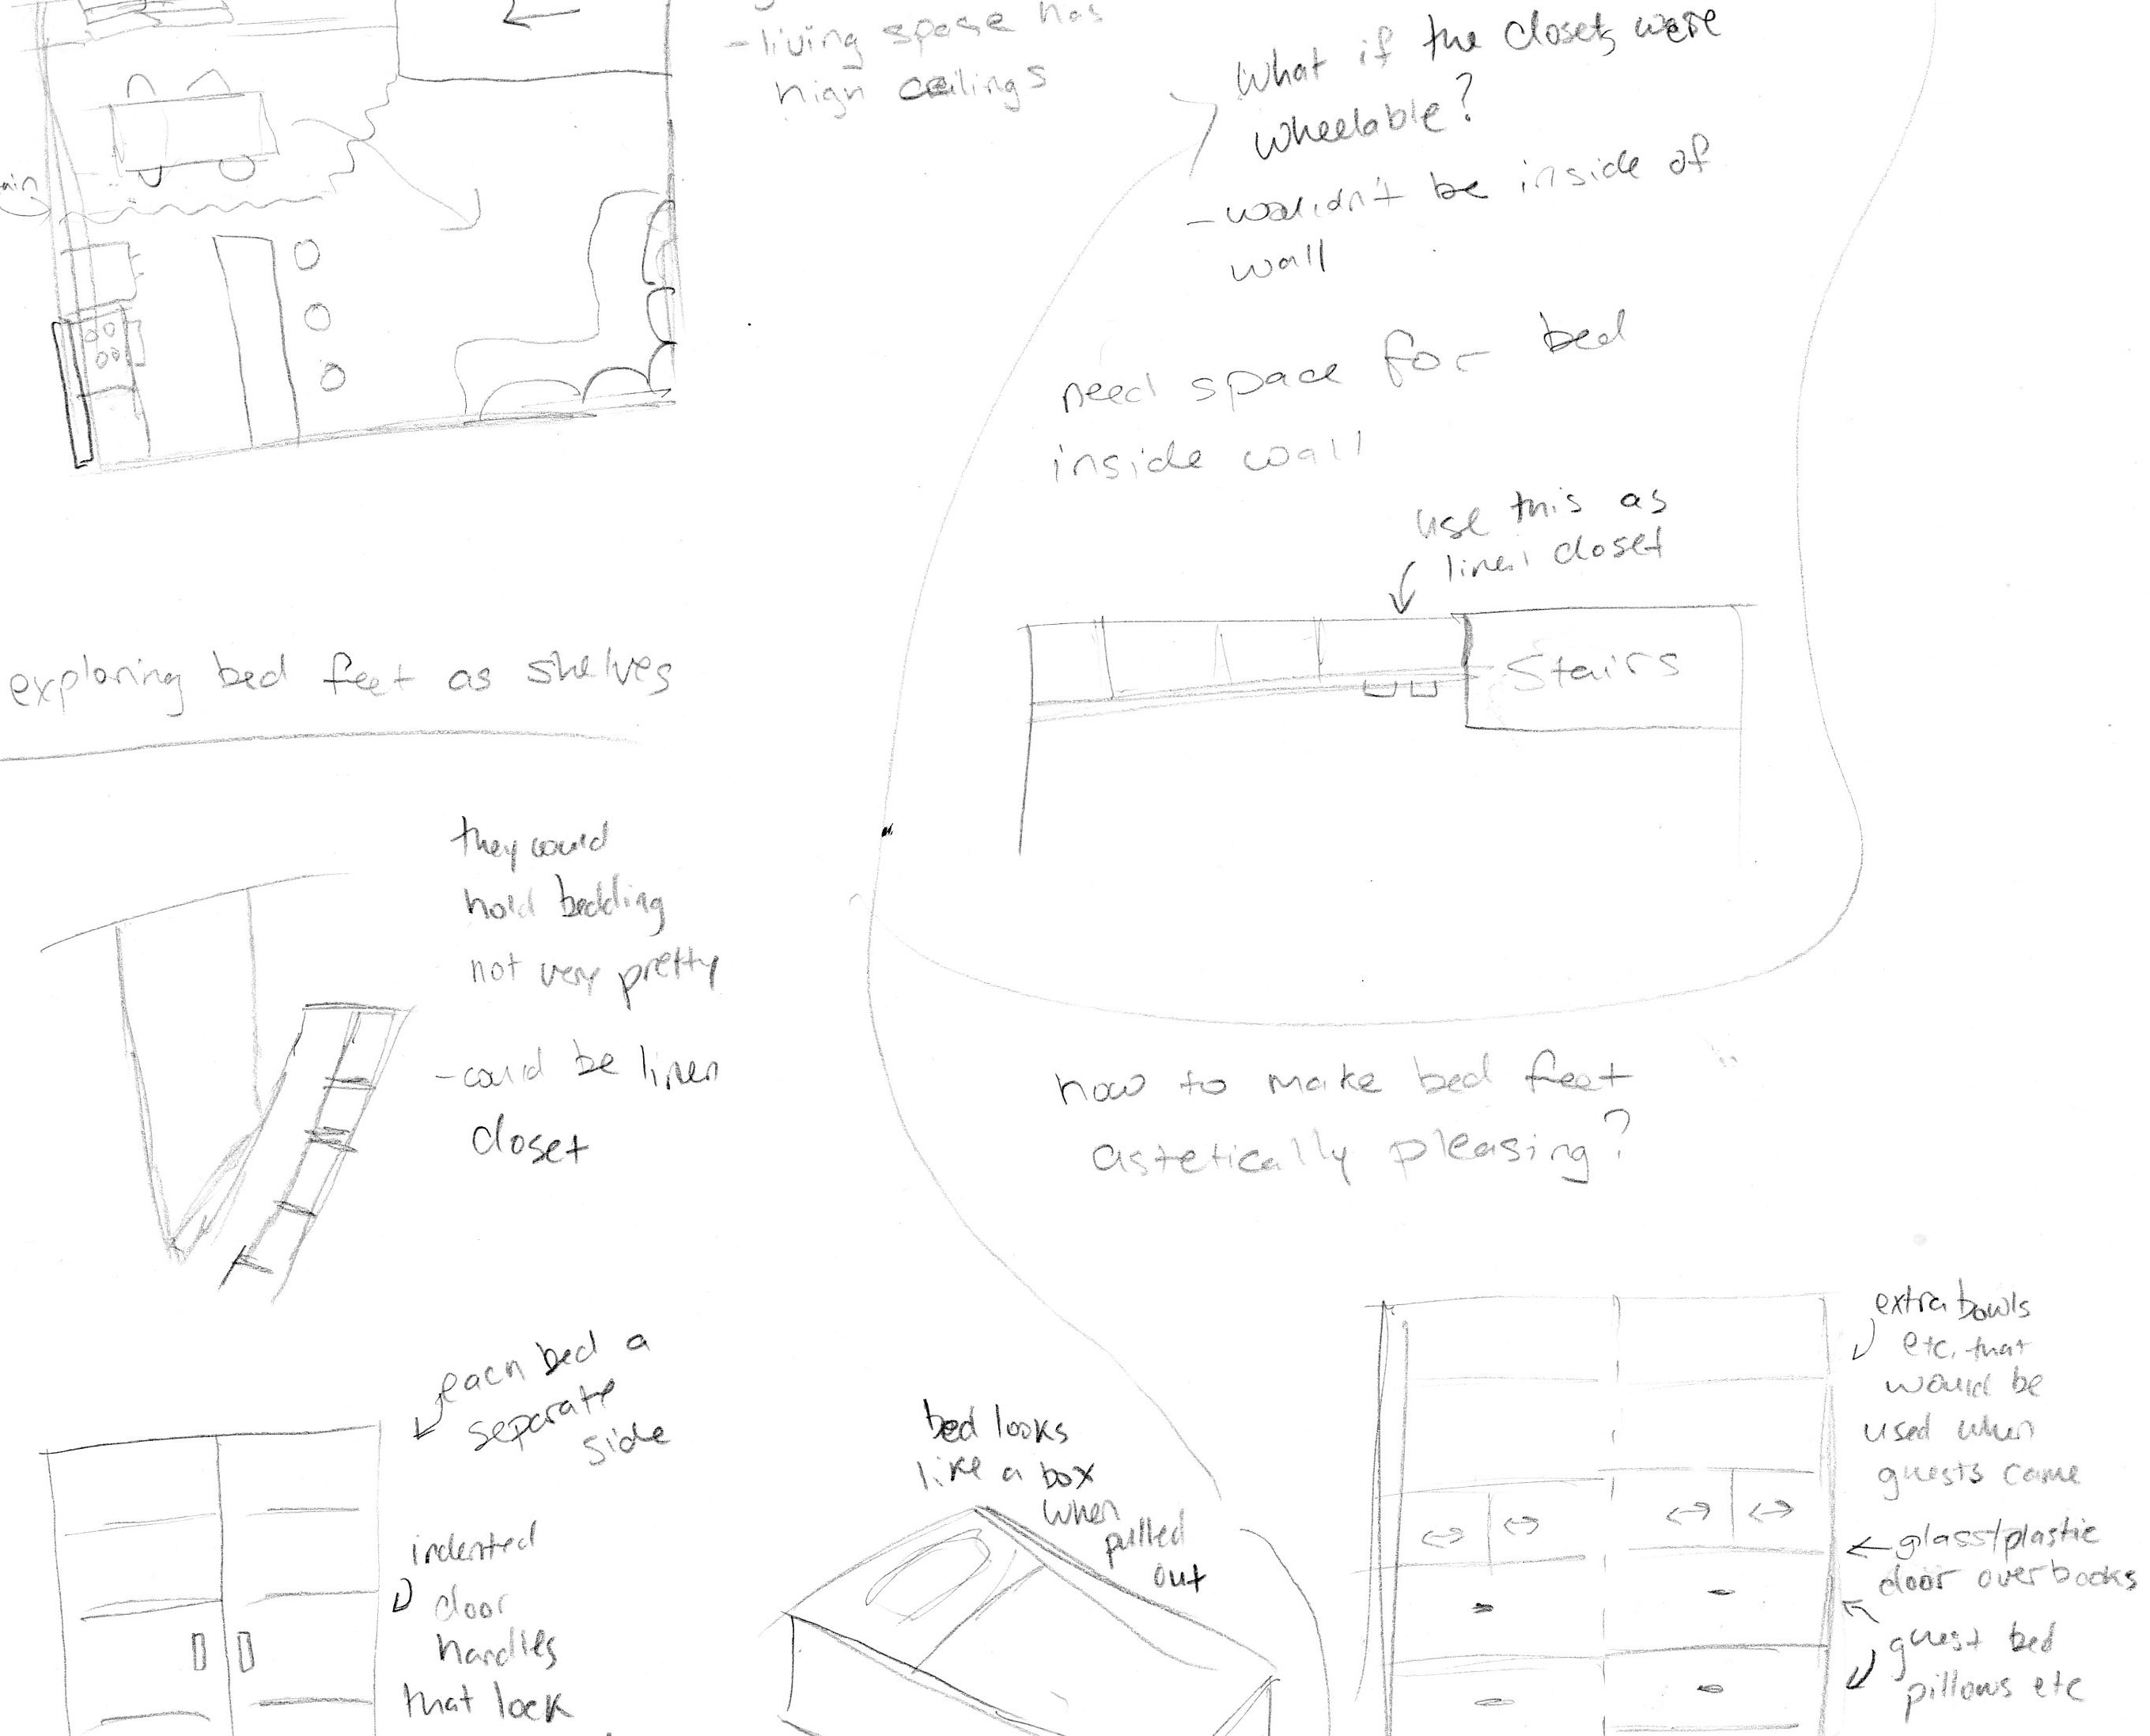 -living spase has
high ceilings
What if the closets were
wheelable?
-wouldn't be inside of
wall
need space for bed
inside wall
use this as
linen closet
Stairs
exploring bed feet as shelves
they could
hold bedding
not very pretty
-could be linen
closet
how to make bed feet
astetically pleasing?
each bed a
separate
side
indented
door
handles
that lock
bed looks
like a box
when
pulled
out
extra bowls
etc. that
would be
used when
guests came
glass/plastic
door over books
guest bed
pillows etc